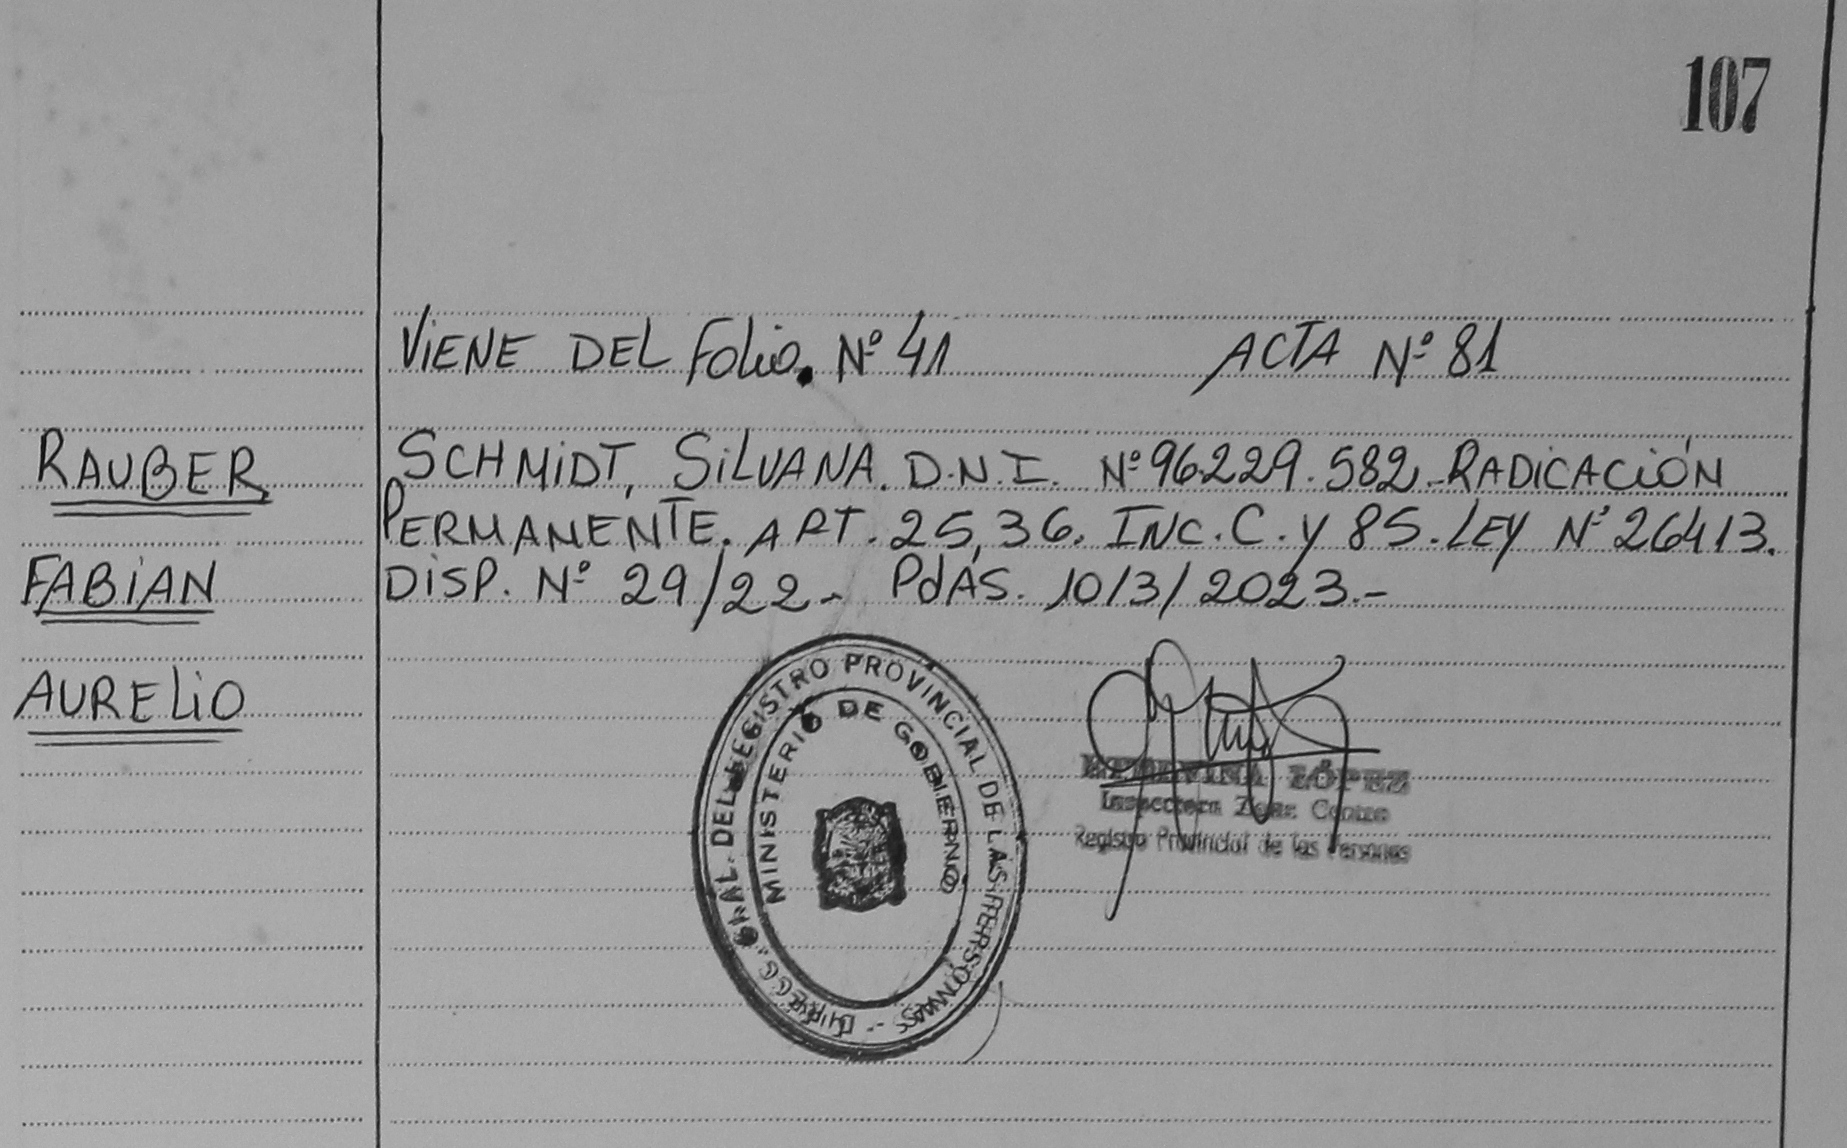 107
VIENE DEL Folio. Nº 41 ACTA Nº 81
RAUBER
FABIAN
AURELIO
SCHMIDT, SILVANA. D.N.I. Nº 96229.582.-RADICACIÓN
PERMANENTE. ART. 25,36. INC. C. Y 85. LEY Nº 26413.
DISP. Nº 29/22- PdAS. 10/3/2023.-
DIRECC. GRAL. DEL REGISTRO PROVINCIAL DE LAS PERSONAS -
MINISTERIO DE GOBIERNO
LÓPEZ
Inspectora Zona Centro
Registro Provincial de las Personas